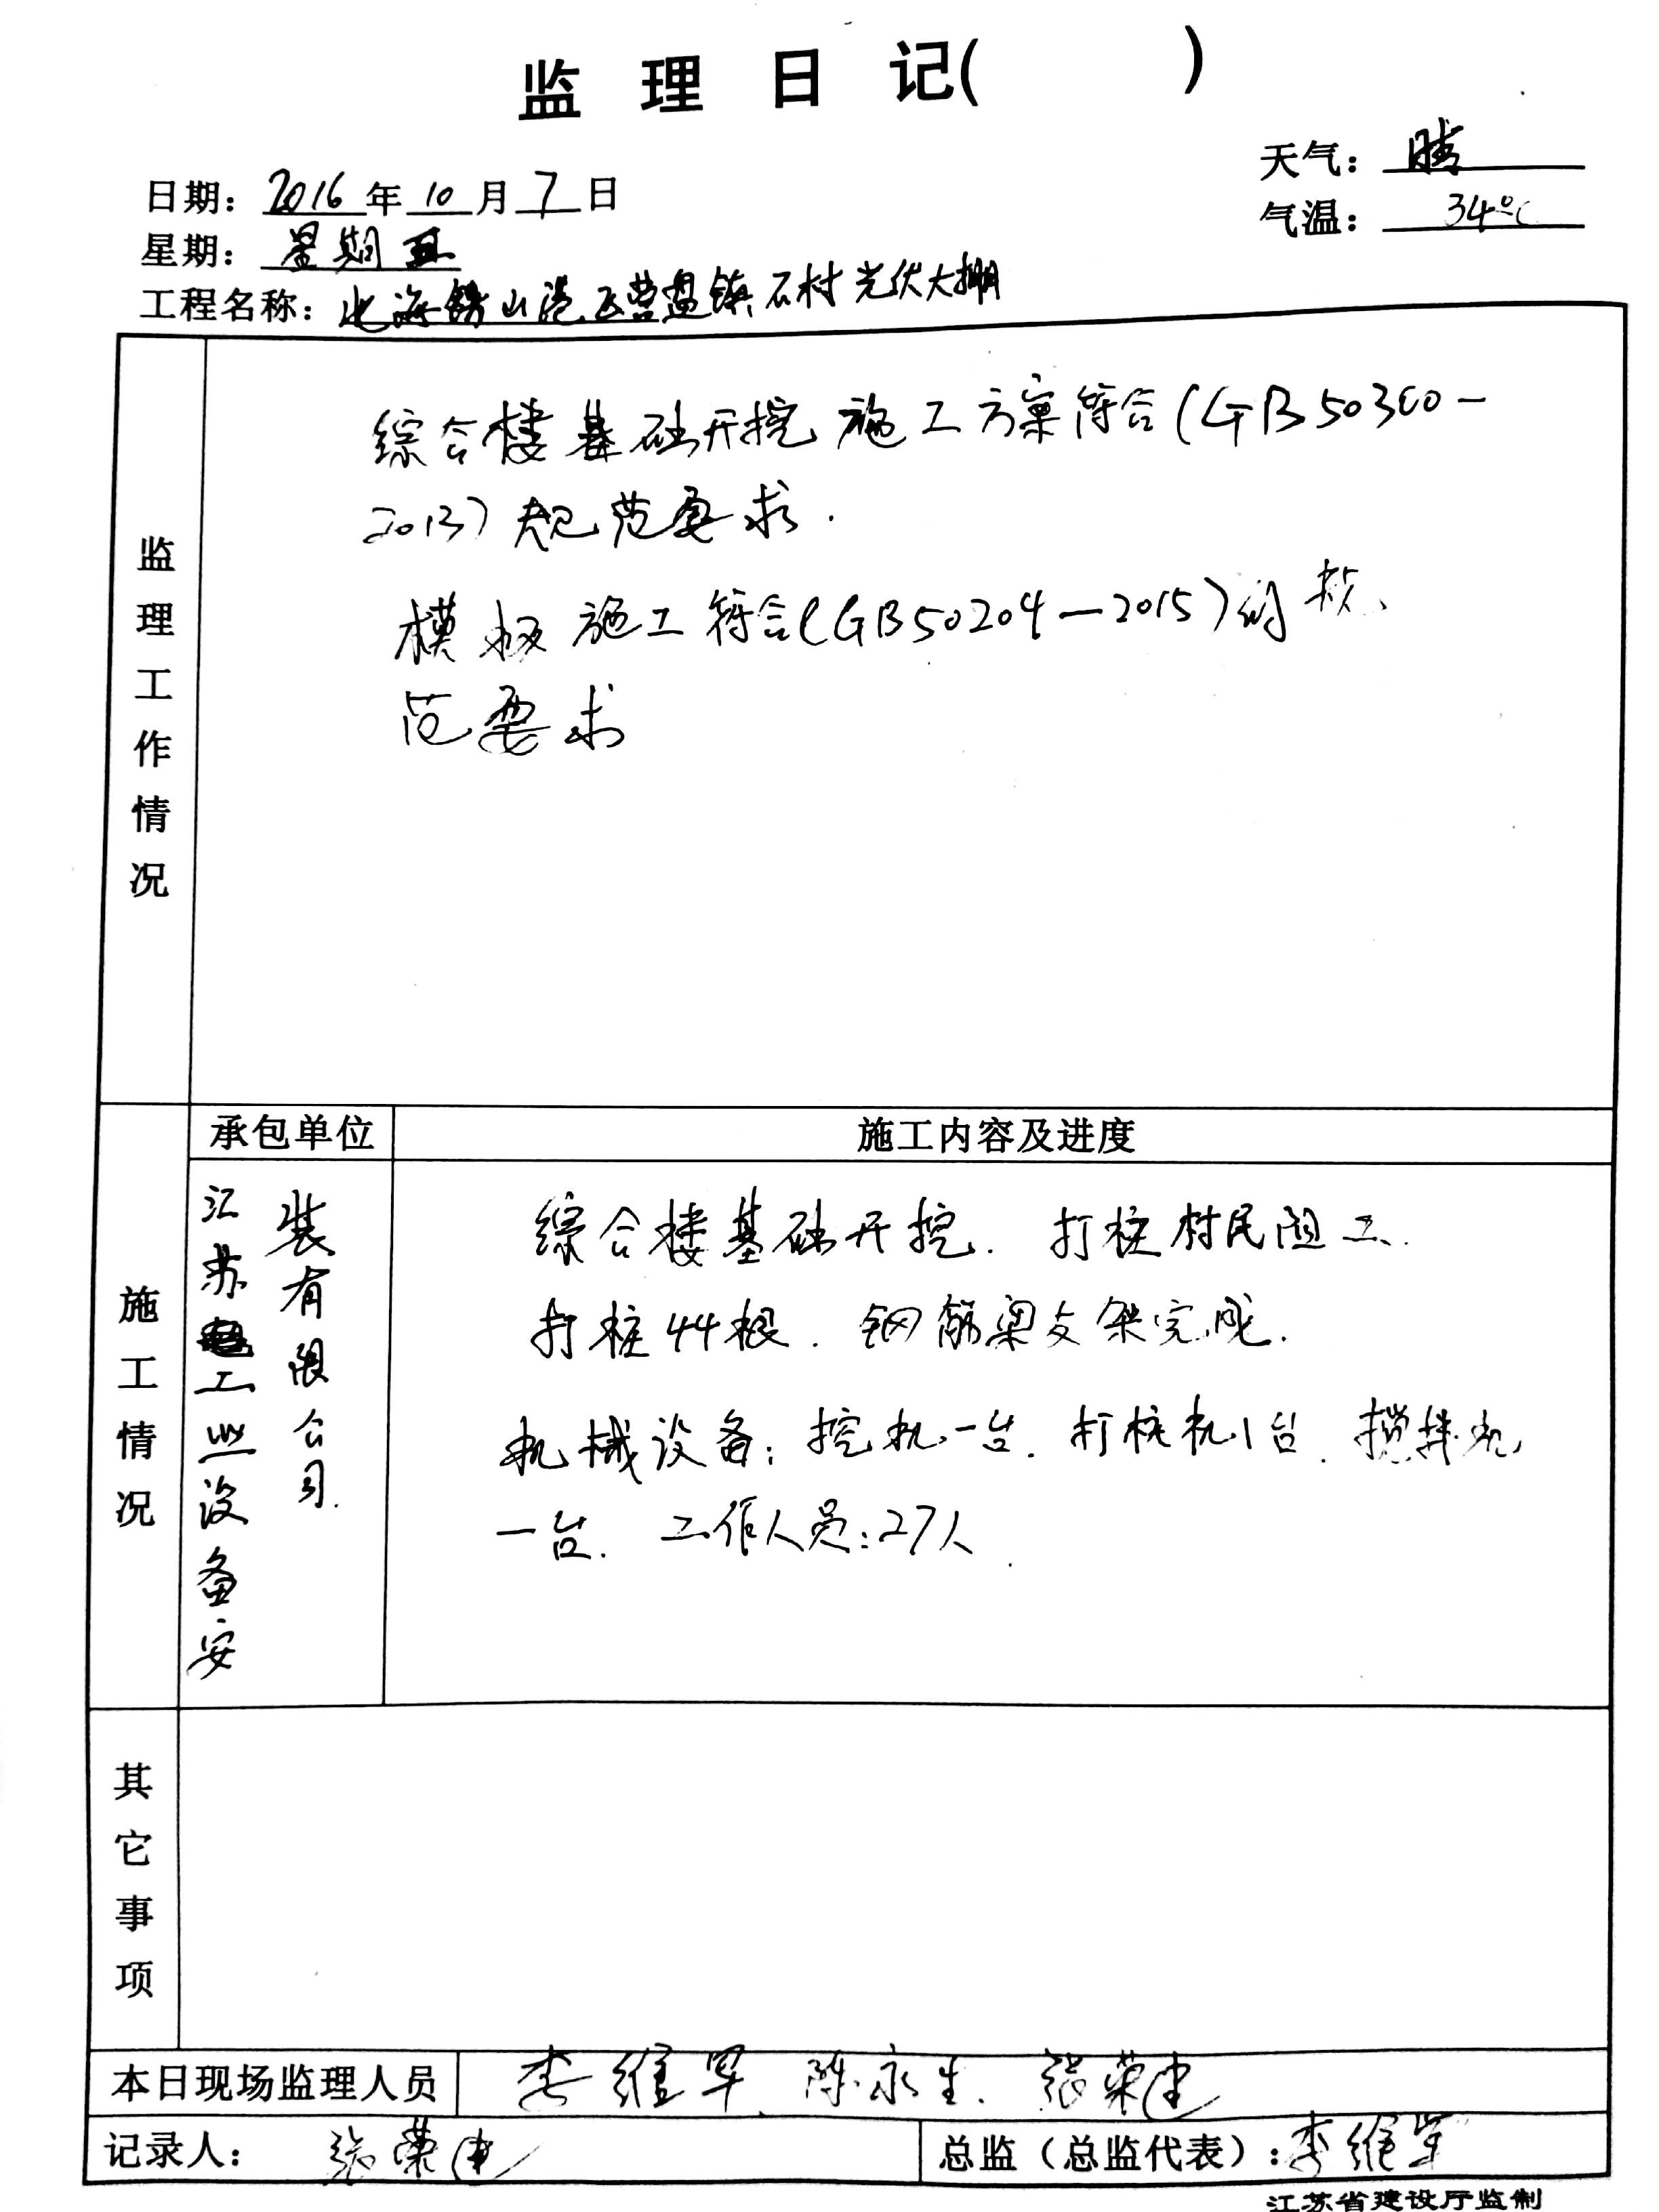 监理日记(　　)
天气：晴
日期：2016年10月7日
气温：34℃
星期：星期五
工程名称：北海铁山港区营盘镇石村光伏大棚
监理工作情况
综合楼基础开挖施工方案符合(GB50300-
2013)规范要求.
模板施工符合(GB50204-2015)的规
范要求
施工情况
承包单位
施工内容及进度
江苏工业设备安
装有限公司.
综合楼基础开挖. 打桩村民阻工.
打桩44根. 钢筋梁支架完成.
机械设备：挖机一台. 打桩机1台. 搅拌机
一台. 工作人员：27人.
其它事项
本日现场监理人员 李维军 陈永生. 张荣建
记录人： 张荣建
总监（总监代表）：李维军
江苏省建设厅监制